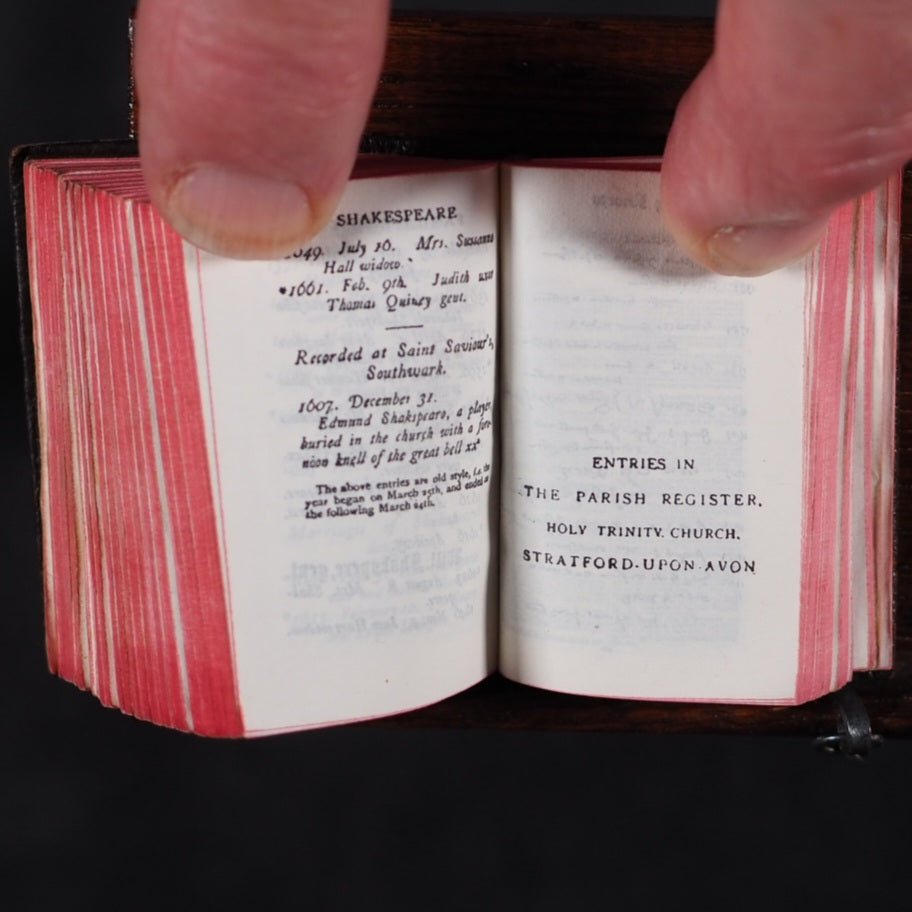 SHAKESPEARE
1649. July 16. Mrs. Susanna
Hall widow.
1661. Feb. 9th. Judith uxor
Thomas Quiney gent.
Recorded at Saint Saviour's,
Southwark.
1607. December 31.
Edmund Shakspeare, a player
buried in the church with a fore-
noon knell of the great bell xxs
The above entries are old style, i.e. the
year began on March 25th, and ended at
the following March 24th.
ENTRIES IN
THE PARISH REGISTER,
HOLY TRINITY CHURCH,
STRATFORD-UPON-AVON